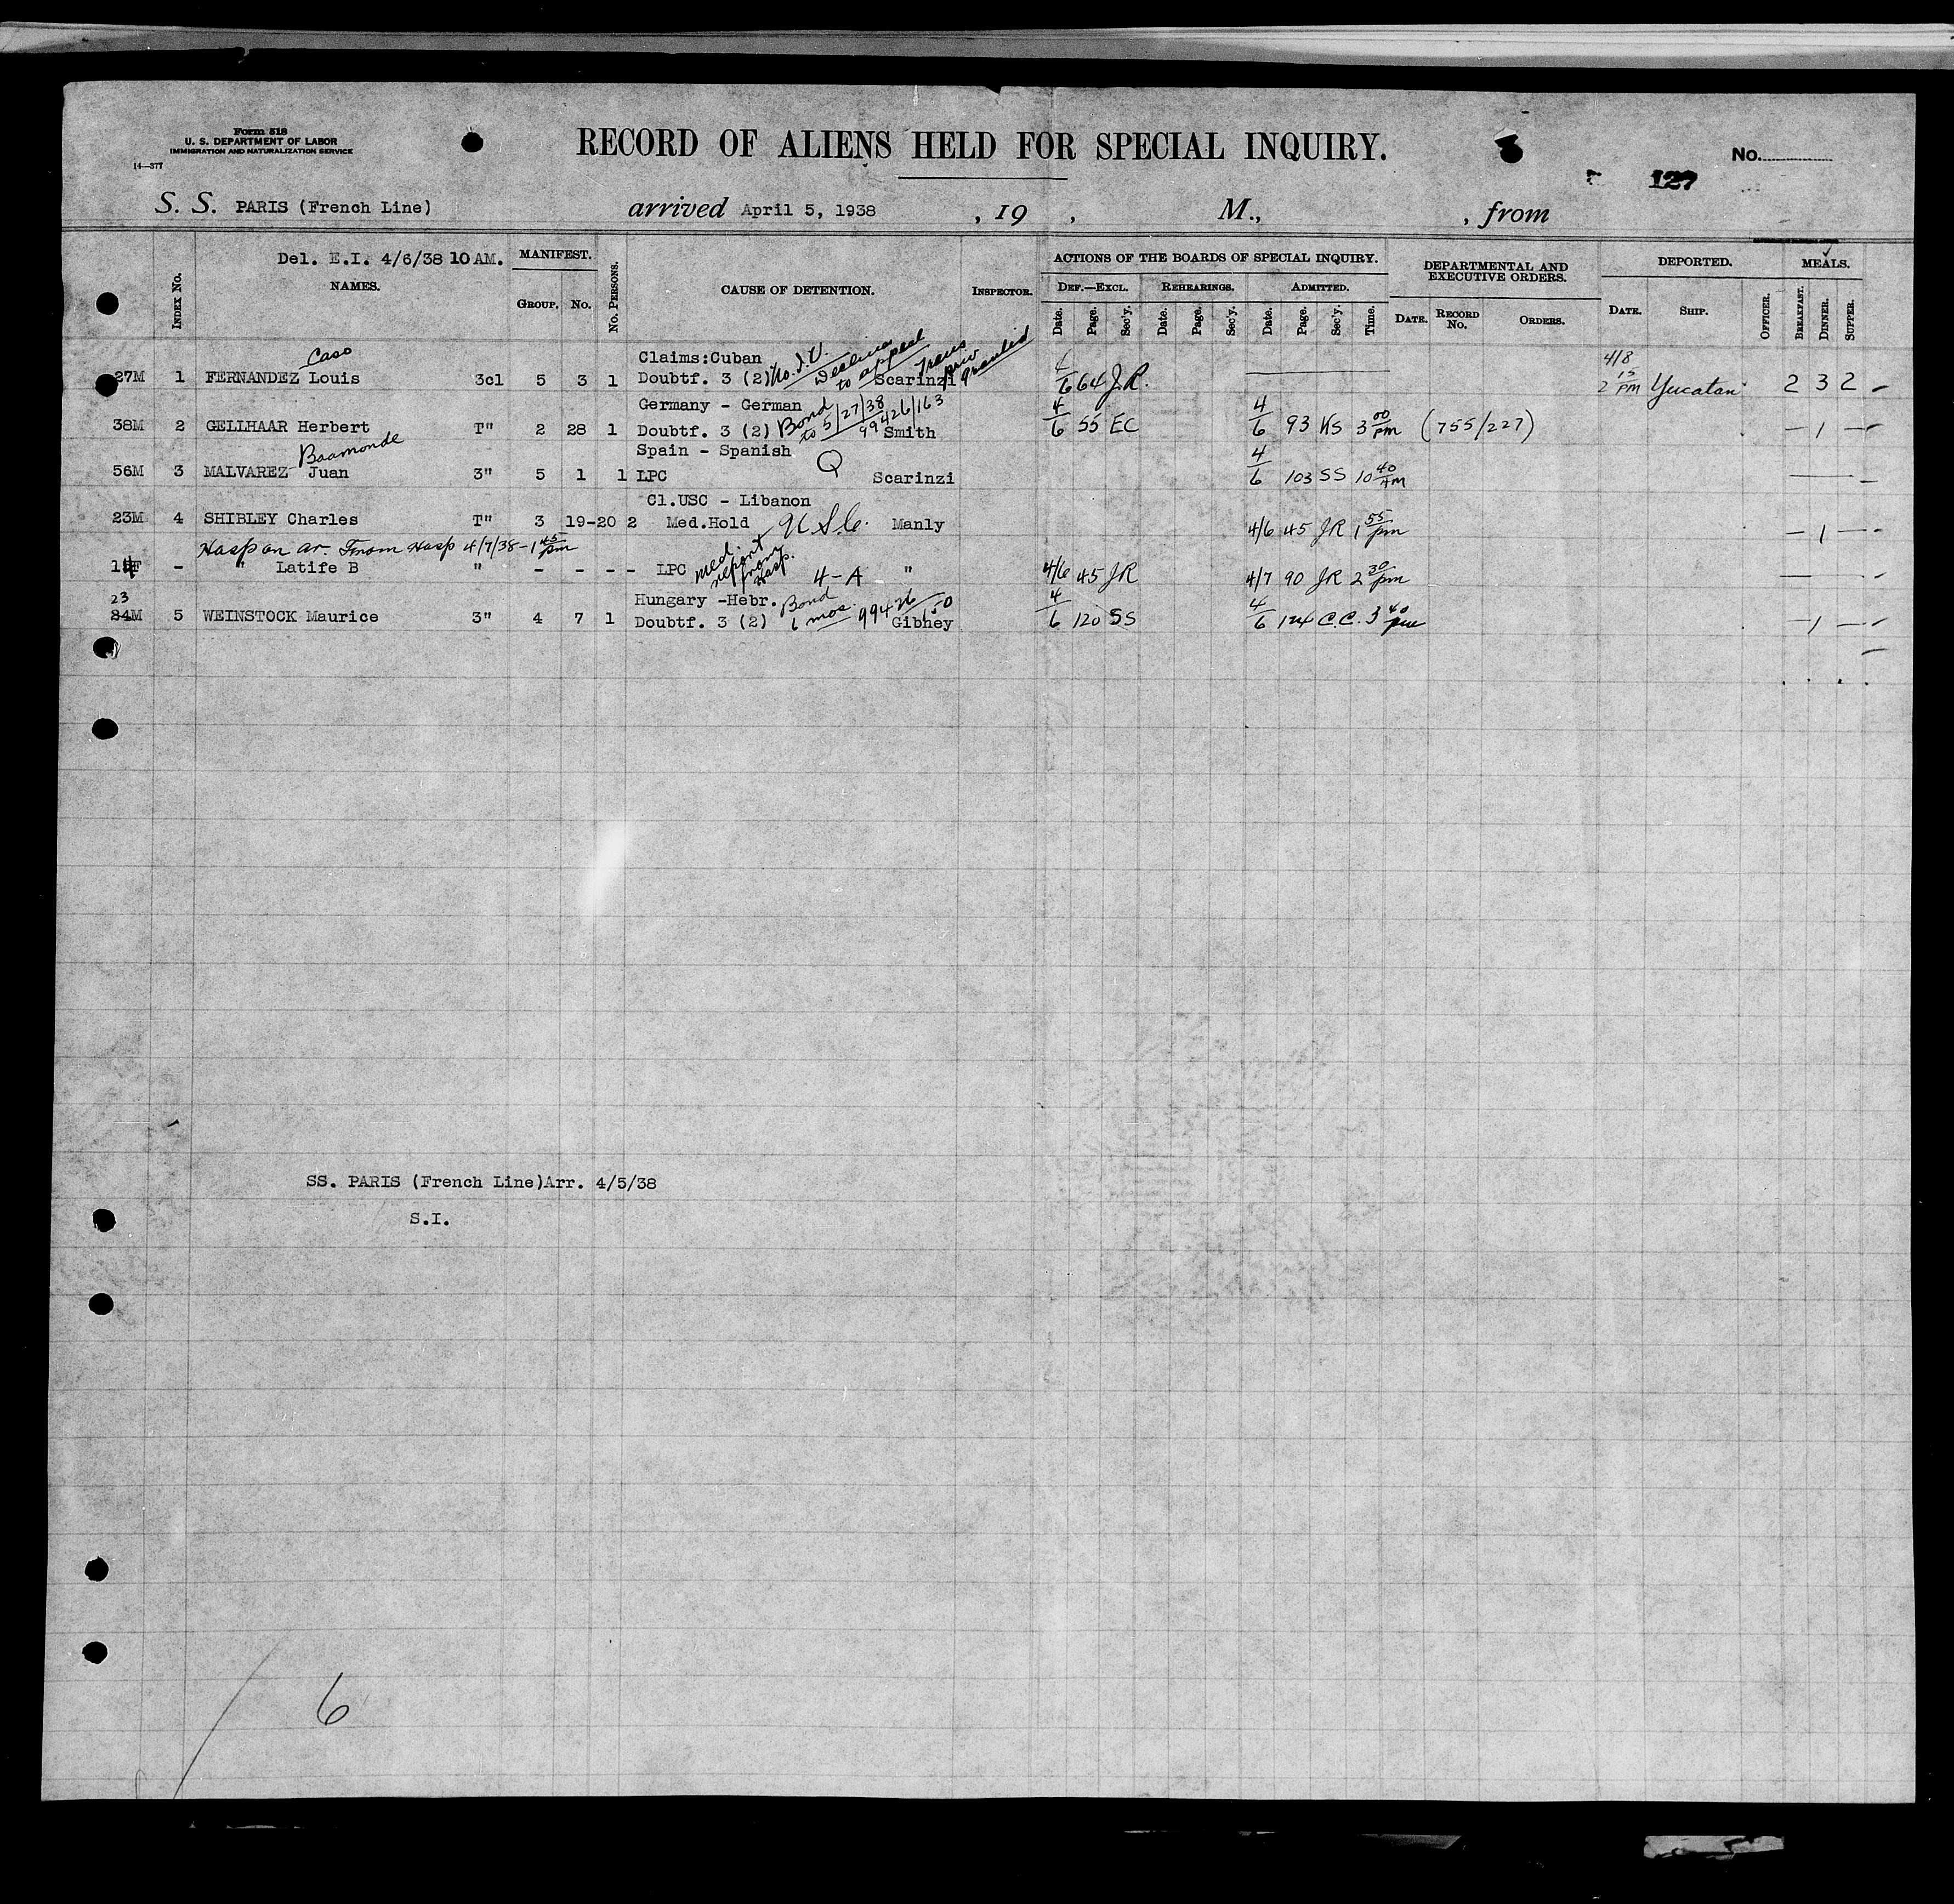 Form 518
U. S. DEPARTMENT OF LABOR
IMMIGRATION AND NATURALIZATION SERVICE
14—377
RECORD OF ALIENS HELD FOR SPECIAL INQUIRY.
No.
127
S. S. PARIS (French Line) arrived April 5, 1938 , 19 , M., , from
Del. E.I. 4/6/38 10 AM.
INDEX NO. NAMES. MANIFEST. GROUP. NO. NO. PERSONS. CAUSE OF DETENTION. INSPECTOR.
ACTIONS OF THE BOARDS OF SPECIAL INQUIRY. DEF.—EXCL. REHEARINGS. ADMITTED.
Date. Page. Sec'y. Date. Page. Sec'y. Date. Page. Sec'y. Time.
DEPARTMENTAL AND EXECUTIVE ORDERS. DATE. RECORD NO. ORDERS.
DEPORTED. DATE. SHIP. OFFICER. MEALS. BREAKFAST. DINNER. SUPPER.
Caso Claims:Cuban No. I.V. to appeal Trans priv granted 4/8
27M 1 FERNANDEZ Louis 3cl 5 3 1 Doubtf. 3 (2) Scarinzi 6 64 J.R. 2 15 PM Yucatan 2 3 2
Germany - German Bond to 5/27/38 99426/163
38M 2 GELLHAAR Herbert T" 2 28 1 Doubtf. 3 (2) Smith 4/6 55 EC 4/6 93 KS 3 00 pm (755/227) — 1 —
Baamonde Spain - Spanish Q
56M 3 MALVAREZ Juan 3" 5 1 1 LPC Scarinzi 4/6 103 SS 10 40 AM
Cl.USC - Libanon
23M 4 SHIBLEY Charles T" 3 19-20 2 Med.Hold U.S.C. Manly 4/6 45 JR 1 55 pm — 1 —
Hosp on ar. From Hosp 4/7/38 - 1 45 pm
- " Latife B " - - - - LPC med. report from Hosp. 4-A " 4/6 45 JR 4/7 90 JR 2 30 pm
23 Hungary -Hebr. Bond 6 mos. 99426/150
24M 5 WEINSTOCK Maurice 3" 4 7 1 Doubtf. 3 (2) Gibney 4/6 120 SS 4/6 124 C.C. 3 40 pm — 1 —
SS. PARIS (French Line)Arr. 4/5/38
S.I.
6